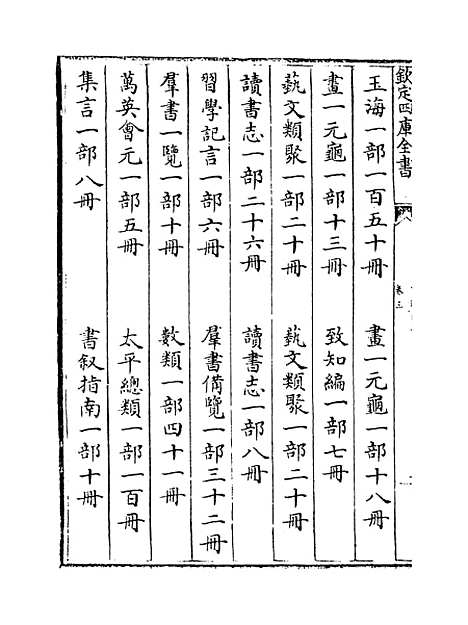 欽定四庫全書
卷三
玉海一部一百五十冊
畫一元龜一部十八冊
畫一元龜一部十三冊
致知編一部七冊
藝文類聚一部二十冊
藝文類聚一部二十冊
讀書志一部二十六冊
讀書志一部八冊
習學記言一部六冊
羣書備覽一部三十二冊
羣書一覽一部十冊
數類一部四十一冊
萬英會元一部五冊
太平總類一部一百冊
集言一部八冊
書叙指南一部十冊